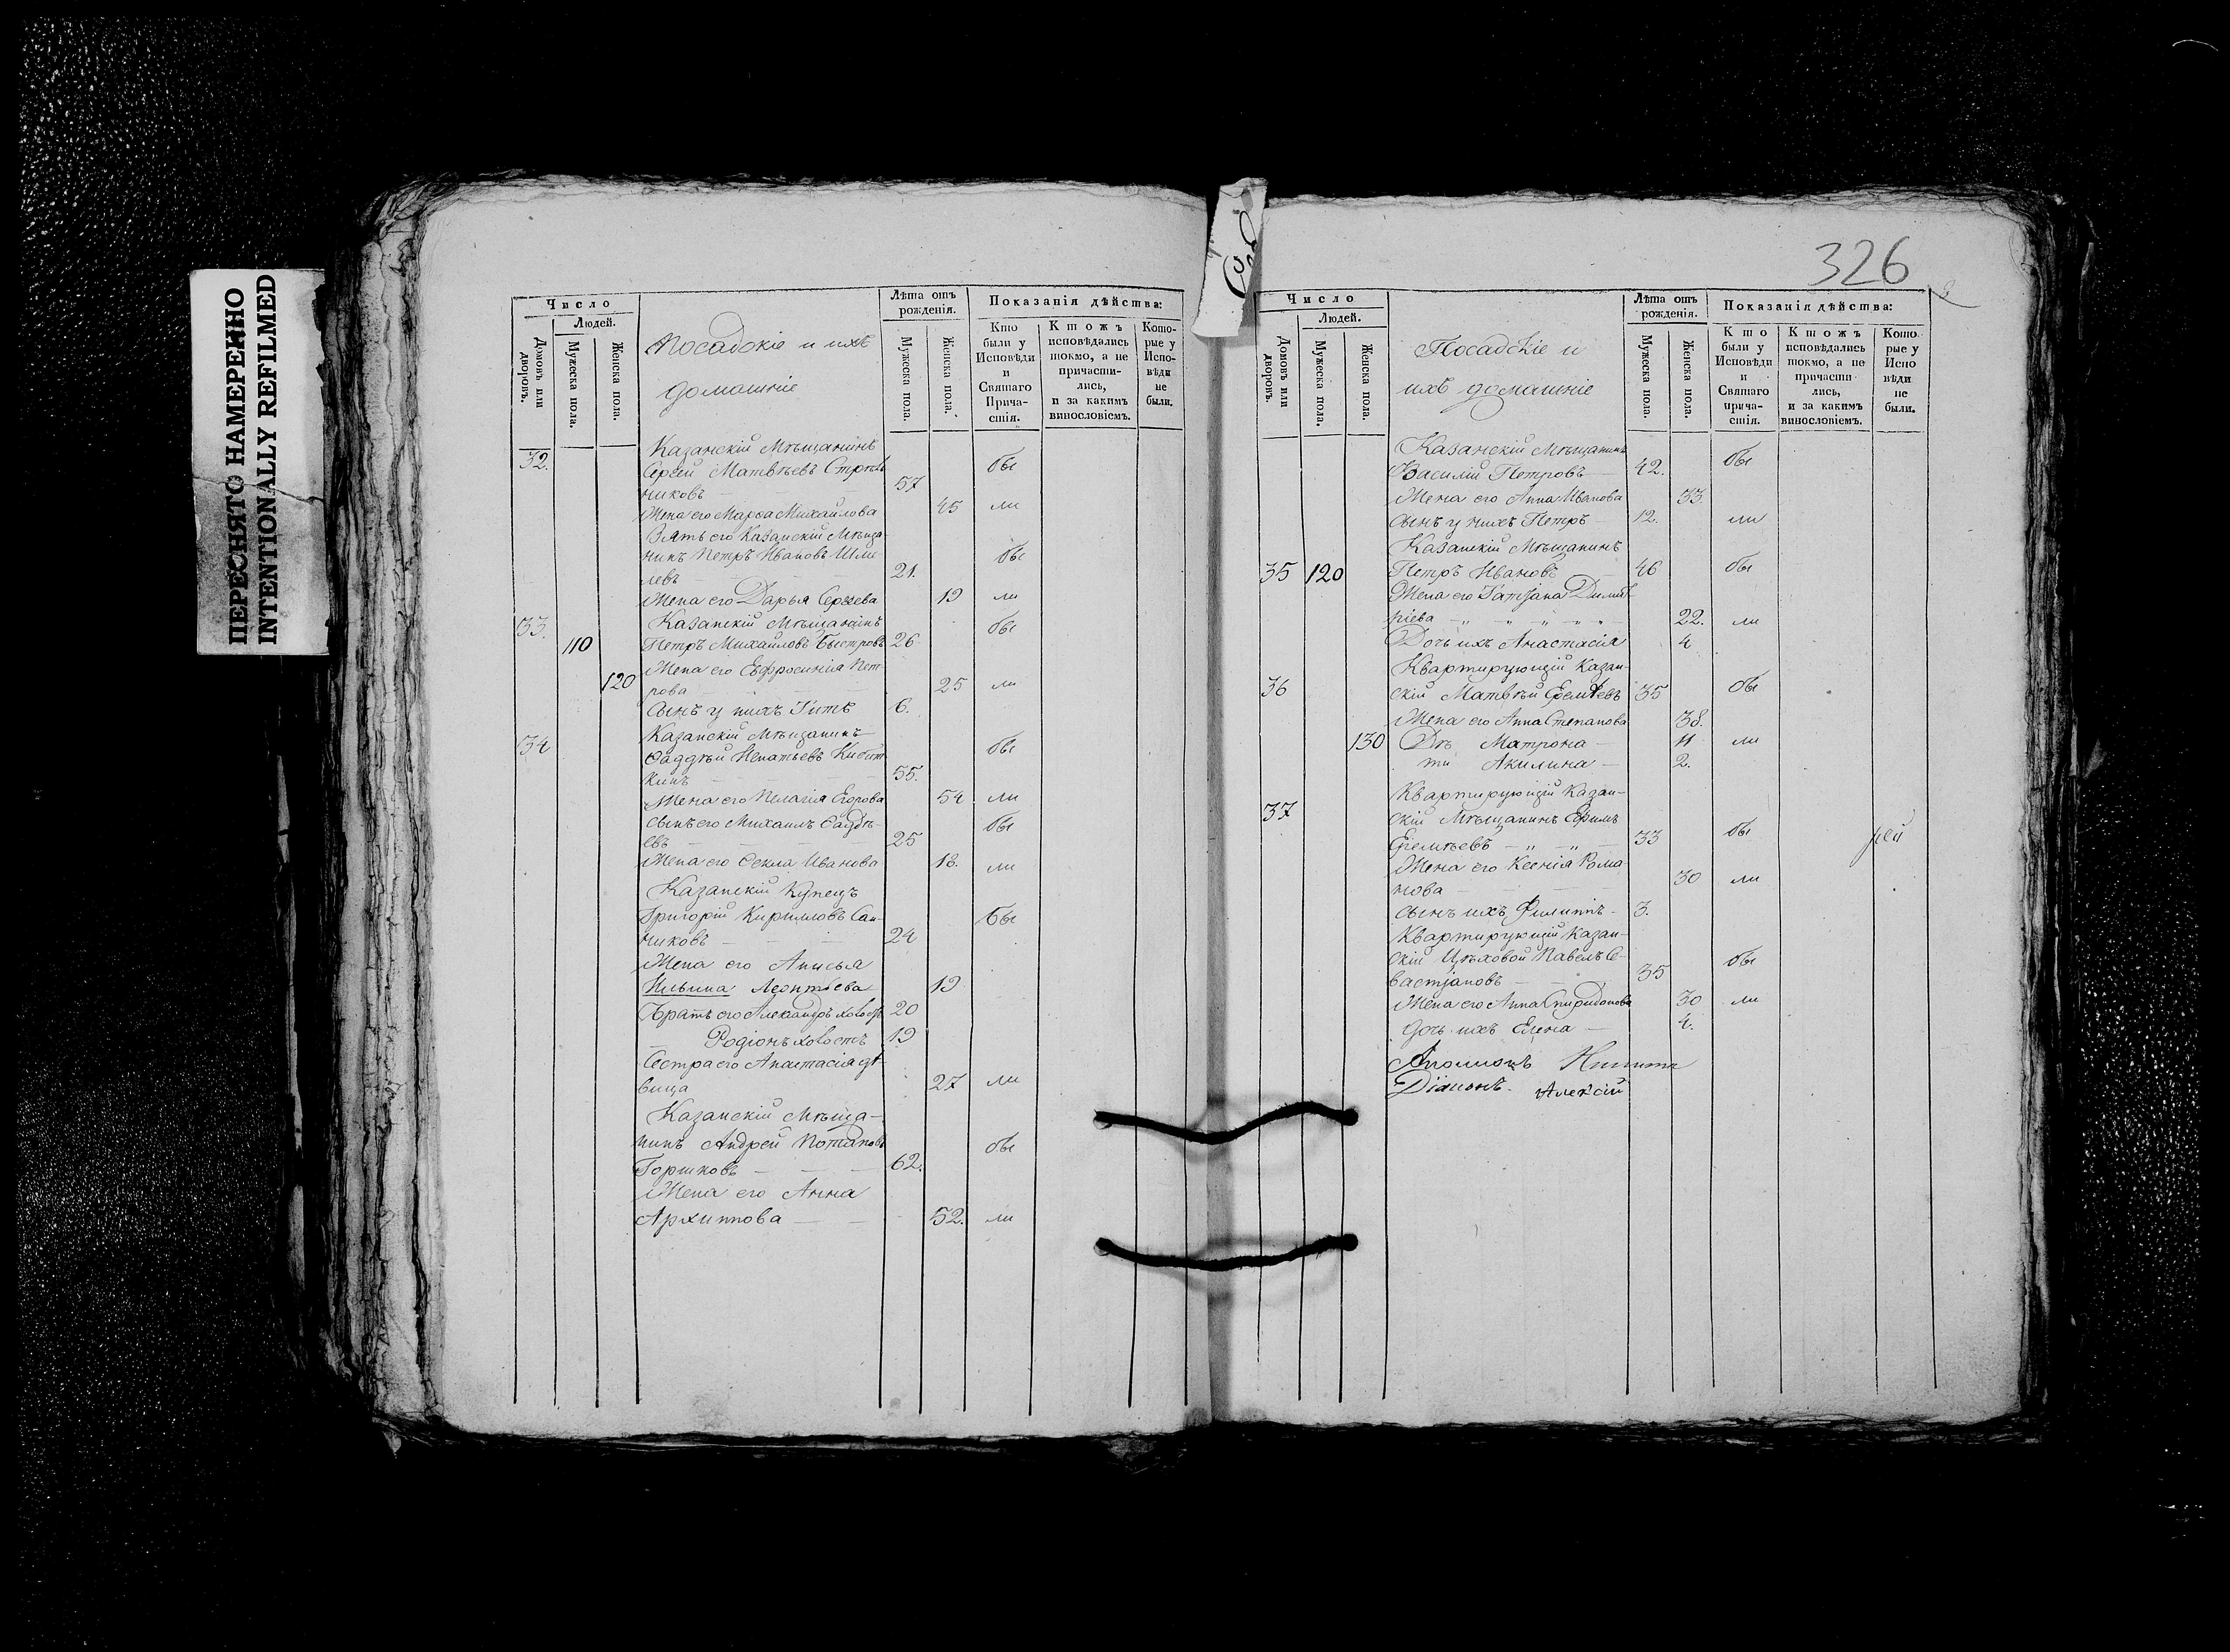 ПЕРЕСНЯТО НАМЕРЕННО
INTENTIONALLY REFILMED
Число
Людей.
Домовъ или дворовъ.
Мужеска пола.
Женска пола.
Посадскіе и ихъ
домашніе
Лѣта отъ рожденія.
Мужеска пола.
Женска пола.
Показанія дѣйства:
Кто были у Исповѣди и Святаго Прича-стія.
Ктожъ исповѣдались токмо, а не причасти-лись, и за какимъ винословіемъ.
Кото-рые у Испо-вѣди не были.
Казанскій Мѣщанинъ
32. Сергѣй Матвѣевъ Стрѣль бы
никовъ 57
Жена его Марѳа Михайлова 45 ли
Зять его Казанскій Мѣща-
нинъ Петръ Ивановъ бы
левъ 21.
Жена его Дарья Сергѣева 19 ли
33. Казанскій Мѣщанинъ бы
110 Петръ Михайловъ Быстровъ 26
Жена его Ефросинія Пет-
120 рова 25 ли
Сынъ у нихъ Титъ 6.
Казанскій Мѣщанинъ
34 Ѳаддѣй Игнатьевъ бы
кинъ 55.
Жена его Пелагія Егорова 54 ли
Сынъ его Михаилъ Ѳаддѣ- бы
евъ 25
Жена его Ѳекла Иванова 18. ли
Казанскій Купецъ
Григорій Кирилловъ Сан- бы
никовъ 24
Жена его Анисья
Ильина Леонтьева 19
Братъ его Александръ холостъ 20
Родіонъ холостъ 19
Сестра его Анастасія дѣ-
вица 27 ли
Казанскій Мѣща-
нинъ Андрей Потаповъ бы
Горшковъ 62.
Жена его Анна
Архиппова 52. ли
326
Число
Людей.
Домовъ или дворовъ.
Мужеска пола.
Женска пола.
Посадскіе и
ихъ домашніе
Лѣта отъ рожденія.
Мужеска пола.
Женска пола.
Показанія дѣйства:
Кто были у Исповѣди и Святаго прича-стія.
Ктожъ исповѣдались токмо, а не причасти лись, и за какимъ винословіемъ.
Кото-рые у Испо вѣди не были.
Казанскій Мѣщанинъ
Василій Петровъ 42. бы
Жена его Анна Иванова 33.
Сынъ у нихъ Петръ 12. ли
Казанскій Мѣщанинъ
35 120 Петръ Ивановъ 46 бы
Жена его Татіана Димит
ріева 22. ли
Дочь ихъ Анастасія 4
Квартирующій Казан-
36 скій Матвѣй 35 бы
Жена его Анна Степанова 38.
130 Дѣ Матрона 11 ли
ти Акилина 2.
Квартирующій Казан-
37 скій Мѣщанинъ Ефимъ
Еремѣевъ 33 бы рей
Жена его Ксенія Рома
нова 30 ли
Сынъ ихъ Филиппъ 3.
Квартирующій Казан-
скій Цѣховой Павелъ Се- бы
вастіановъ 35
Жена его Анна Спиридонова 30 ли
Дочь ихъ Елена 4.
Діаконъ. Алексій